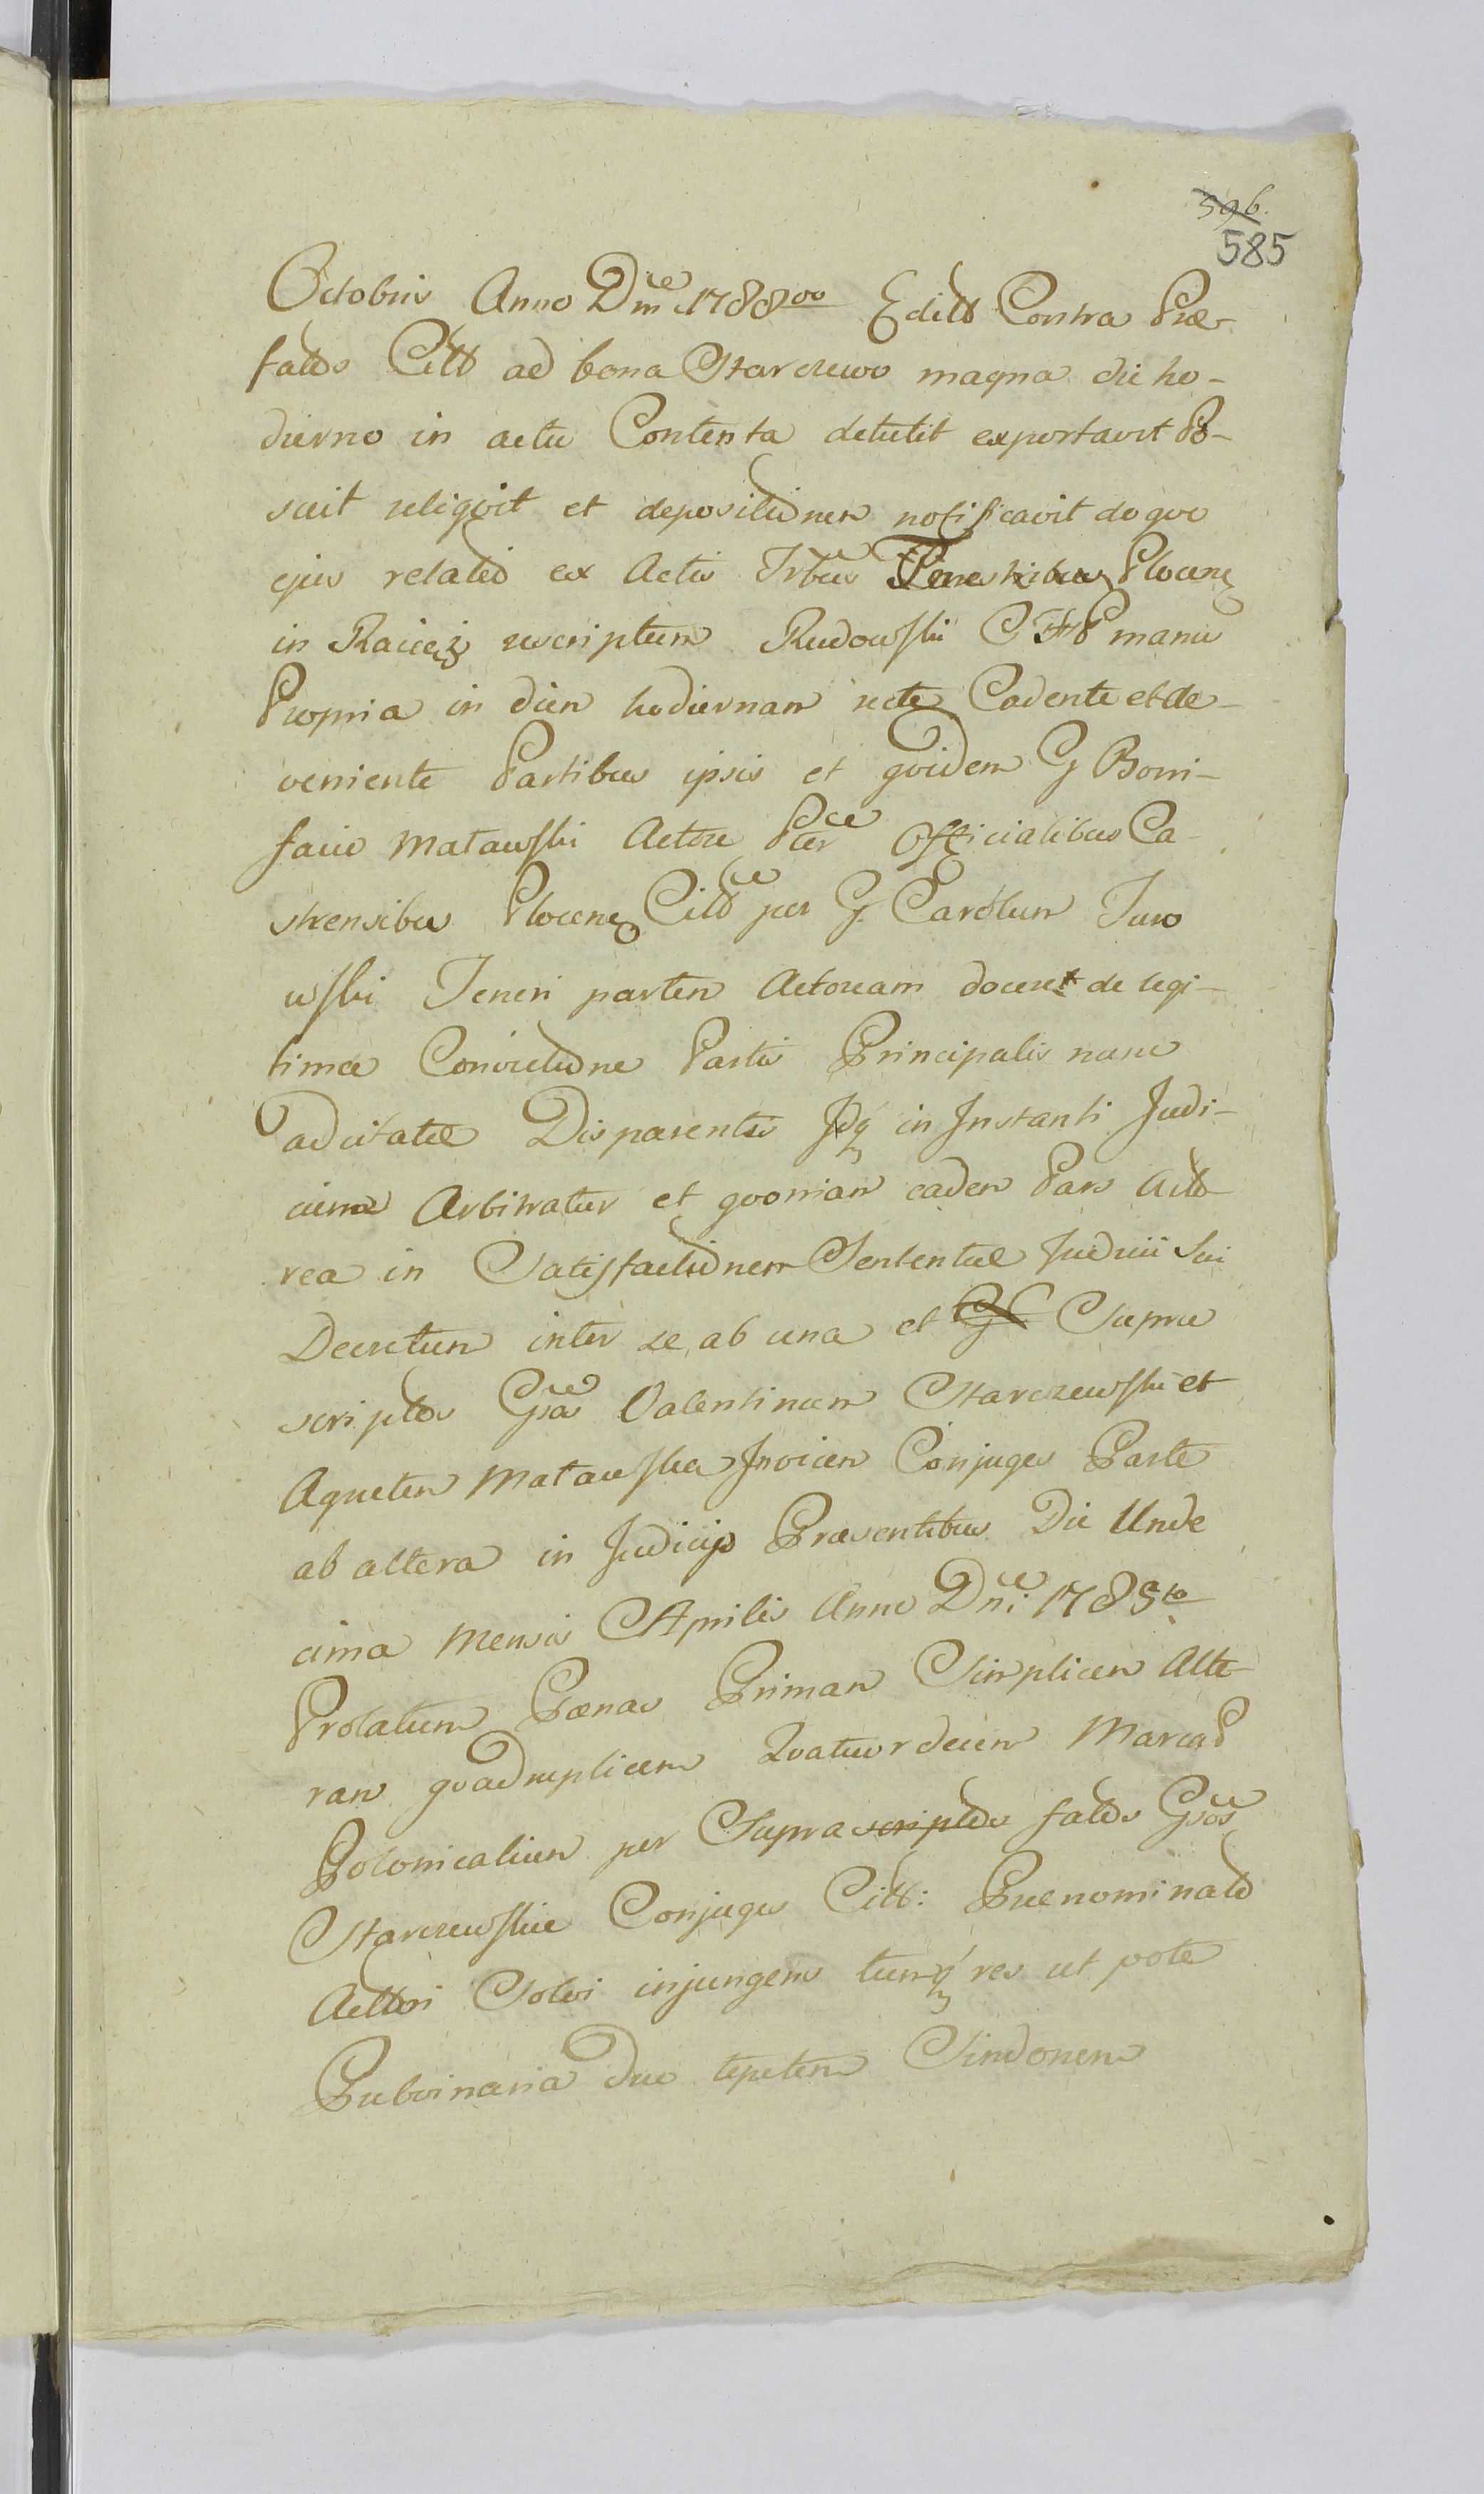 596.
585
Octobris Anno Dni 1788vo Editt Contra Præ-
fatos Citt ad bona Starczewo magna die ho-
dierno in actu Contenta detulit exportavit Po-
suit reliqvit et depositionem notificavit de qvo
ejus relatio ex Actis Trbus Terrestribus Plocens
in Raciąż rescriptum Rudowski CTP manu
Propria in diem hodiernam recte Cadente et de-
veniente Partibus ipsis et qvidem G Boni-
facio Matawski Actore Per Officialibus Ca-
strensibus Plocens Citt per G. Carolum Juro
wski Teneri partem Actoream docere de legi-
tima Convictione Partis Principalis nunc
adcitatæ Disparentis Idq in Instanti Judi-
cium Arbitratur et qvoniam eadem Pars Acto
rea in Satisfactionem Sententiæ Judicii Sui
Decretum inter se ab una et Supra
scriptos Gsos Valentinum Starczewski et
Agnetem Matawska Invicem Conjuges Parte
ab altera in Judicijs Præsentibus Die Unde
cima Mensis Aprilis Anno Dni 1785to
Prolatum Pœnas Primam Simplicem Alte-
ram qvadruplicem Qvatuordecem Marcas
Polonicalium per Supra scriptos fatos Gsos
Starczewskie Conjuges Citt: Prænominato
Actori Solvi injungens tumq res ut pote
Pulvinaria duo tepetem Sindonem